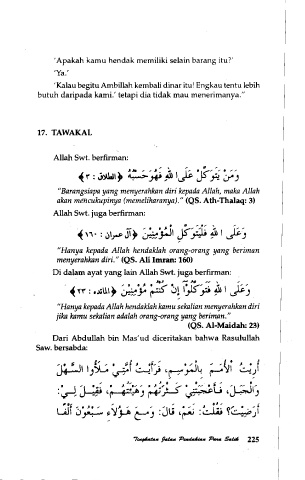 'Apakah kamu hendak memiliki selain barang itu?'
'Ya.'
'Kalau begitu Ambillah kembali dinar itu! Engkau tentu lebih
butuh daripada kami.' tetapi dia tidak mau menerimanya."
17. TAWAKAL
Allah Swt. berfirman:
وَمَنْ يَتَوَكَّلْ عَلَى اللّٰهِ فَهُوَ حَسْبُهُ ﴿الطلاق : ٣﴾
"Barangsiapa yang menyerahkan diri kepada Allah, maka Allah
akan mencukupinya (memeliharanya)." (QS. Ath-Thalaq: 3)
Allah Swt. juga berfirman:
وَعَلَى اللّٰهِ فَلْيَتَوَكَّلِ الْمُؤْمِنِيْنَ ﴿آل عمران : ١٦٠﴾
"Hanya kepada Allah hendaklah orang-orang yang beriman
menyerahkan diri." (QS. Ali Imran: 160)
Di dalam ayat yang lain Allah Swt. juga berfirman:
وَعَلَى اللّٰهِ فَتَوَكَّلُوْا إِنْ كُنْتُمْ مُؤْمِنِيْنَ ﴿المائده : ٢٣﴾
"Hanya kepada Allah hendaklah kamu sekalian menyerahkan diri
jika kamu sekalian adalah orang-orang yang beriman."
(QS. Al-Maidah: 23)
Dari Abdullah bin Mas'ud diceritakan bahwa Rasulullah
Saw. bersabda:
أُرِيْتُ الْأُمَمَ بِالْمَوْسِمِ، فَرَأَيْتُ أُمَّتِيْ مَلَأُوا السَّهْلَ
وَالْجَبَلَ، فَأَعْجَبَتْنِيْ كَثْرَتُهُمْ وَهَيْئَتُهُمْ، فَقِيْلَ لِيْ:
أَرَضِيْتَ؟ فَقُلْتُ: نَعَمْ، قَالَ: وَمَعَ هَؤُلَاءِ سَبْعُوْنَ أَلْفًا
Tingkatan Jalan Pendakian Para Salik 225